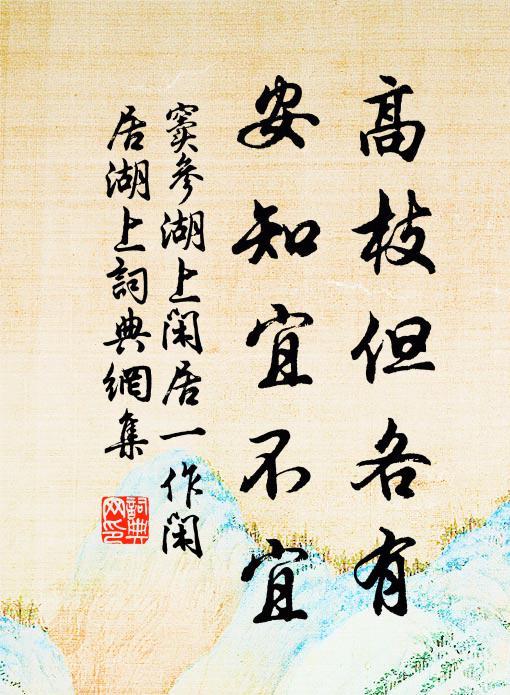 高枝但各有
安知宜不宜
窦參湖上閑居一作閑
居湖上詞典網集
詞典网印